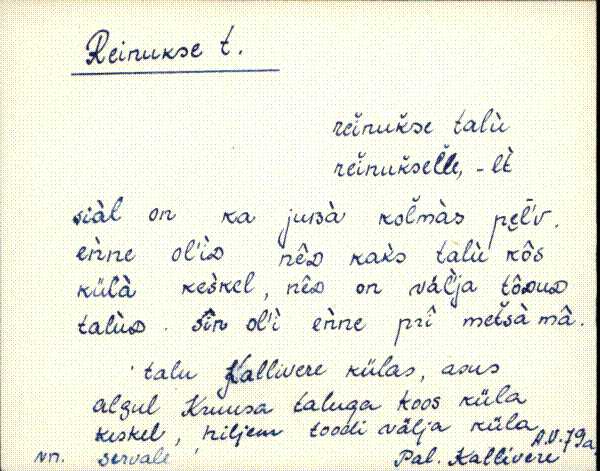 Reinukse t.
reĭnuk̆se talù
reĭnuk̆selle, -lt̀
siàl on ka juʙà kolmàs pę̄l'v.
eǹne ol'ìᴅ nêᴅ kak̀s talù kôs
külà kes̀kel, nêᴅ on väl̀ja tôᴅuᴅ
talùᴅ. sîn ol'ì eǹne prî met̆sà mâ.
talu Kallivere külas, asus
algul Kruusa taluga koos küla
keskel, hiljem toodi välja küla
servale
A.U. 79a
Pal. Kallivere